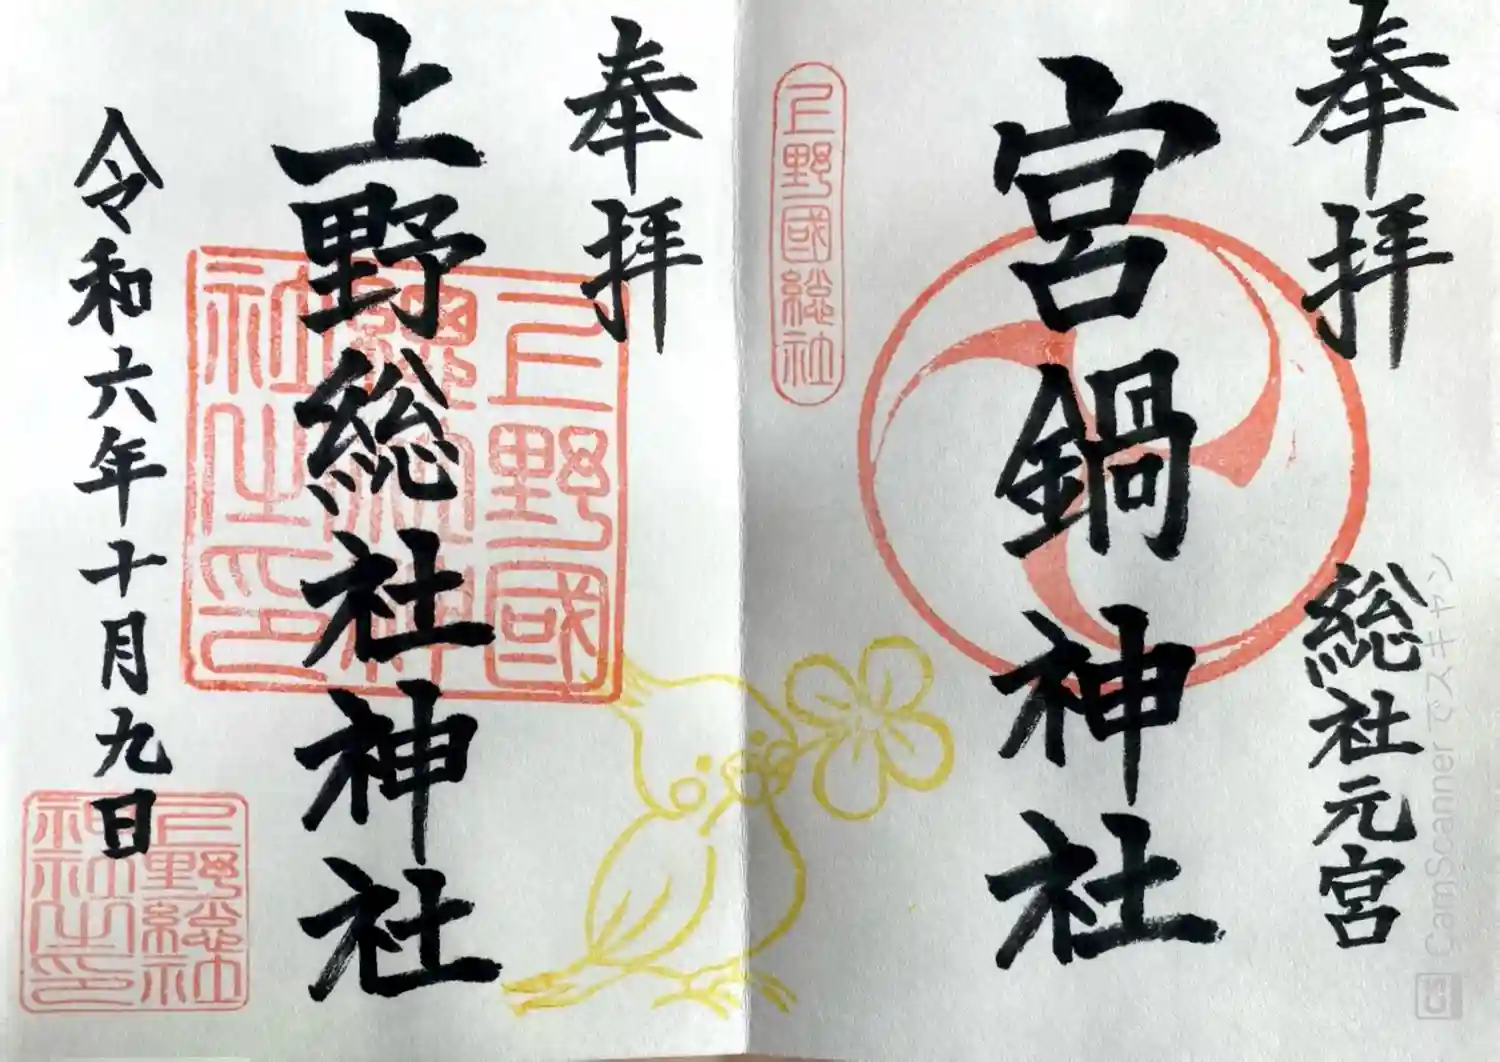 奉拝
総社元宮
宮鍋神社
上野國総社
奉拝
上野総社神社
上野國總社神社之印
令和六年十月九日
上野総社神社之印
CamScanner でスキャン
CS